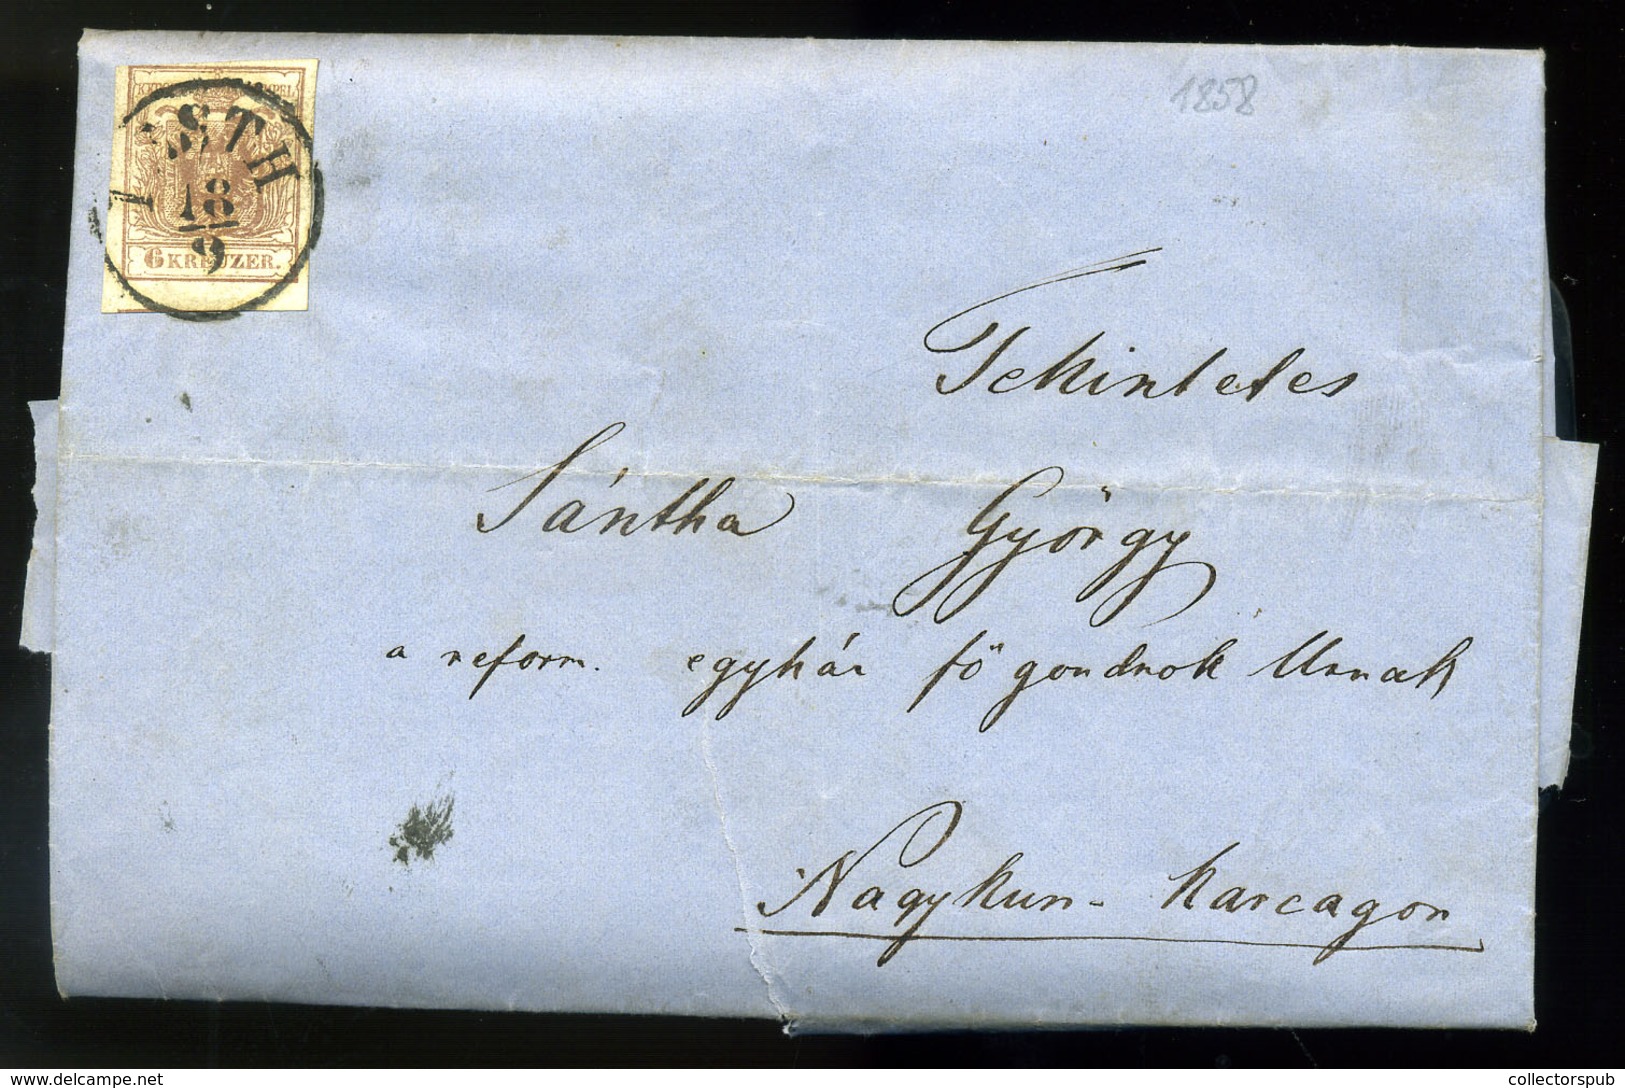 1858
PESTH
18
9
6 KREUZER.
Tekintetes
Sántha György
a reform. egyház fő gondnok Urnak
Nagykun-Karcagon
delcampe.net
collectorspub